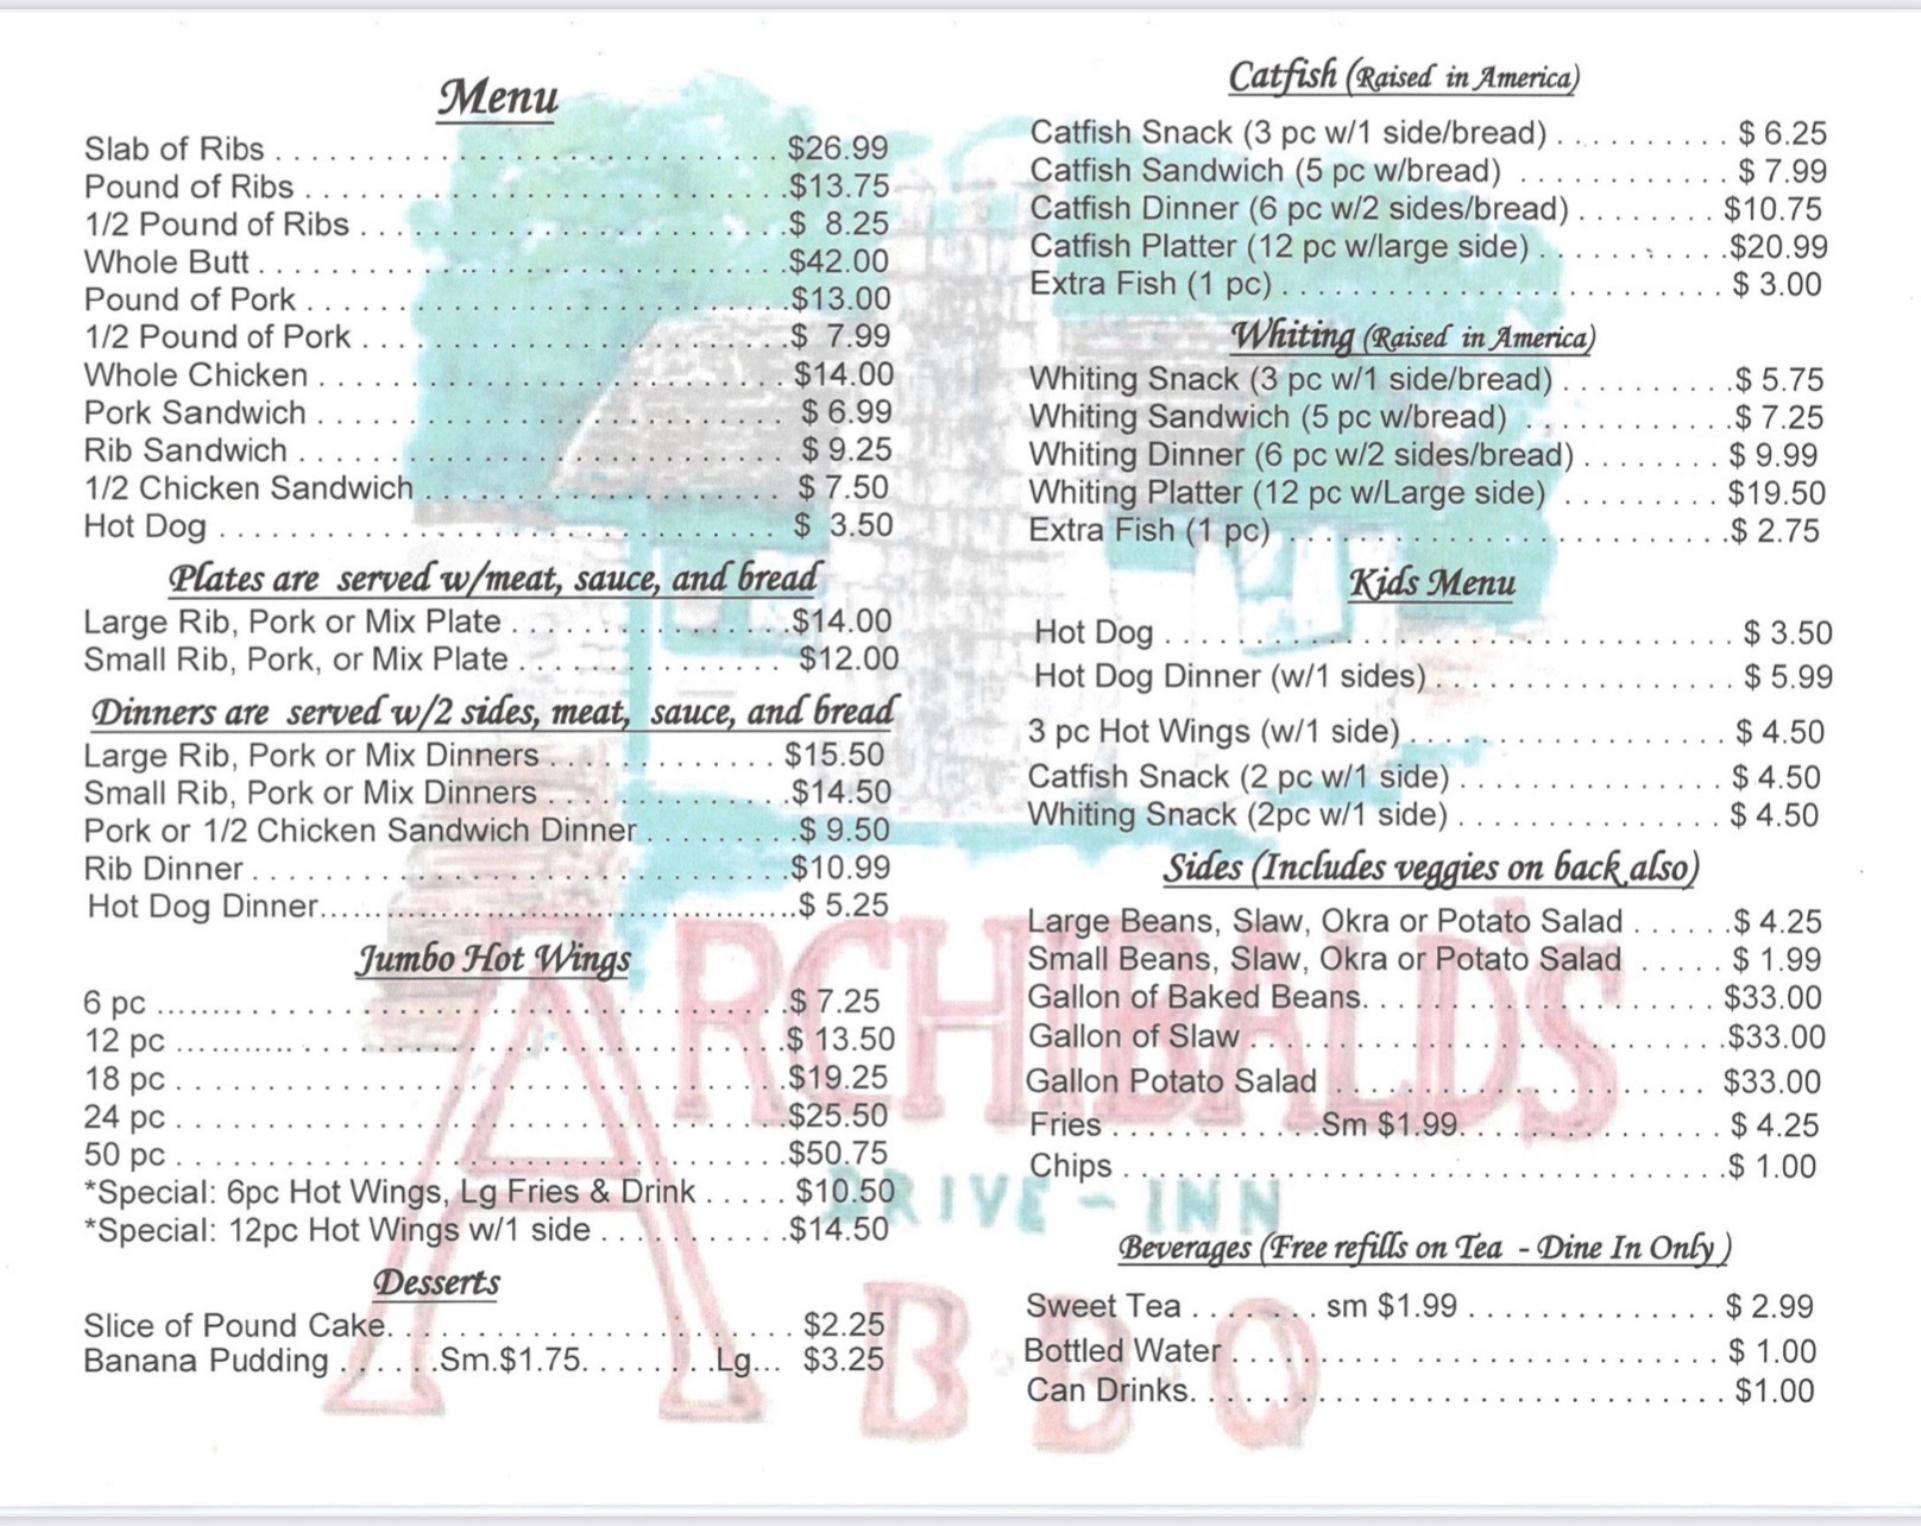 Menu
Slab of Ribs . . . . . . . . . . $26.99
Pound of Ribs . . . . . . . . . . $13.75
1/2 Pound of Ribs . . . . . . . . . . $ 8.25
Whole Butt . . . . . . . . . . $42.00
Pound of Pork . . . . . . . . . . $13.00
1/2 Pound of Pork . . . . . . . . . . $ 7.99
Whole Chicken . . . . . . . . . . $14.00
Pork Sandwich . . . . . . . . . . $ 6.99
Rib Sandwich . . . . . . . . . . $ 9.25
1/2 Chicken Sandwich . . . . . . . . . . $ 7.50
Hot Dog . . . . . . . . . . $ 3.50
Plates are served w/meat, sauce, and bread
Large Rib, Pork or Mix Plate . . . . . . . . . . $14.00
Small Rib, Pork, or Mix Plate . . . . . . . . . . $12.00
Dinners are served w/2 sides, meat, sauce, and bread
Large Rib, Pork or Mix Dinners . . . . . . . . . . $15.50
Small Rib, Pork or Mix Dinners . . . . . . . . . . $14.50
Pork or 1/2 Chicken Sandwich Dinner . . . . . . . . . $ 9.50
Rib Dinner . . . . . . . . . . $10.99
Hot Dog Dinner . . . . . . . . . . $ 5.25
Jumbo Hot Wings
6 pc . . . . . . . . . . $ 7.25
12 pc . . . . . . . . . . $ 13.50
18 pc . . . . . . . . . . $19.25
24 pc . . . . . . . . . . $25.50
50 pc . . . . . . . . . . $50.75
*Special: 6pc Hot Wings, Lg Fries & Drink . . . . . $10.50
*Special: 12pc Hot Wings w/1 side . . . . . . . . . . $14.50
Desserts
Slice of Pound Cake. . . . . . . . . . $2.25
Banana Pudding . . . . . .Sm.$1.75. . . . . . . .Lg... $3.25
Catfish (Raised in America)
Catfish Snack (3 pc w/1 side/bread) . . . . . . . . . . $ 6.25
Catfish Sandwich (5 pc w/bread) . . . . . . . . . . $ 7.99
Catfish Dinner (6 pc w/2 sides/bread) . . . . . . . . $10.75
Catfish Platter (12 pc w/large side) . . . . . . . . . . $20.99
Extra Fish (1 pc) . . . . . . . . . . $ 3.00
Whiting (Raised in America)
Whiting Snack (3 pc w/1 side/bread) . . . . . . . . . . $ 5.75
Whiting Sandwich (5 pc w/bread) . . . . . . . . . . $ 7.25
Whiting Dinner (6 pc w/2 sides/bread) . . . . . . . . $ 9.99
Whiting Platter (12 pc w/Large side) . . . . . . . . . $19.50
Extra Fish (1 pc) . . . . . . . . . . $ 2.75
Kids Menu
Hot Dog . . . . . . . . . . $ 3.50
Hot Dog Dinner (w/1 sides) . . . . . . . . . . $ 5.99
3 pc Hot Wings (w/1 side) . . . . . . . . . . $ 4.50
Catfish Snack (2 pc w/1 side) . . . . . . . . . . $ 4.50
Whiting Snack (2pc w/1 side) . . . . . . . . . . $ 4.50
Sides (Includes veggies on back also)
Large Beans, Slaw, Okra or Potato Salad . . . . . . $ 4.25
Small Beans, Slaw, Okra or Potato Salad . . . . . $ 1.99
Gallon of Baked Beans. . . . . . . . . . $33.00
Gallon of Slaw . . . . . . . . . . $33.00
Gallon Potato Salad . . . . . . . . . . $33.00
Fries . . . . . . . . . . .Sm $1.99. . . . . . . . . . $ 4.25
Chips . . . . . . . . . . $ 1.00
Beverages (Free refills on Tea - Dine In Only )
Sweet Tea . . . . . . . sm $1.99 . . . . . . . . . . $ 2.99
Bottled Water . . . . . . . . . . $ 1.00
Can Drinks. . . . . . . . . . $1.00
ARCHIBALD'S
DRIVE-INN
B·B·Q